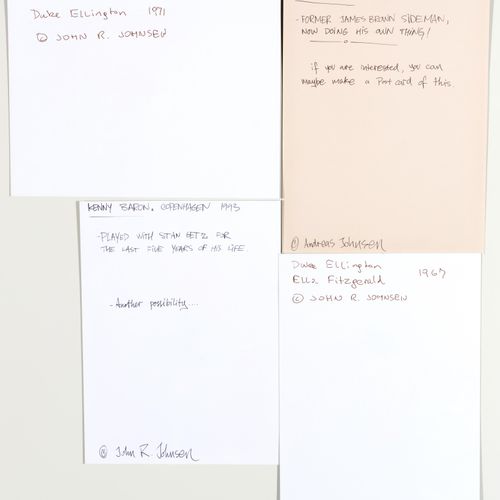 Duke Ellington 1971
© JOHN R. JOHNSEN
- FORMER JAMES BROWN SIDEMAN,
NOW DOING HIS OWN THING!
if you are interested, you can
maybe make a Post card of this.
© Andreas Johnsen
KENNY BARON. COPENHAGEN 1993
- PLAYED WITH STAN GETZ FOR
THE LAST FIVE YEARS OF HIS LIFE.
- Another possibility....
© John R. Johnsen
Duke Ellington 1967
Ella Fitzgerald
© JOHN R. JOHNSEN